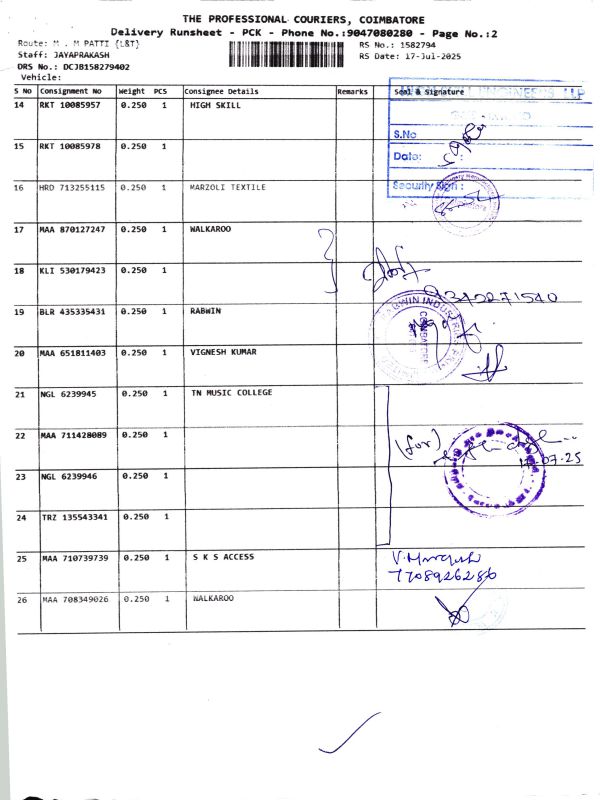 THE PROFESSIONAL COURIERS, COIMBATORE
Delivery Runsheet - PCK - Phone No.:9047080280 - Page No.:2
Route: M . M PATTI {L&T}
RS No.: 1582794
Staff: JAYAPRAKASH
RS Date: 17-Jul-2025
DRS No.: DCJB158279402
Vehicle:
S No Consignment No Weight PCS Consignee Details Remarks Seal & Signature
14 RKT 10085957 0.250 1 HIGH SKILL
S.No
15 RKT 10085978 0.250 1
Date:
16 HRD 713255115 0.250 1 MARZOLI TEXTILE
Security Sign :
17 MAA 870127247 0.250 1 WALKAROO
18 KLI 530179423 0.250 1
19 BLR 435335431 0.250 1 RABWIN
RABWIN INDUSTRIES
COIMBATORE
20 MAA 651811403 0.250 1 VIGNESH KUMAR
21 NGL 6239945 0.250 1 TN MUSIC COLLEGE
22 MAA 711428089 0.250 1
(for)
17.07.25
23 NGL 6239946 0.250 1
24 TRZ 135543341 0.250 1
25 MAA 710739739 0.250 1 S K S ACCESS
7708926286
26 MAA 708349026 0.250 1 WALKAROO